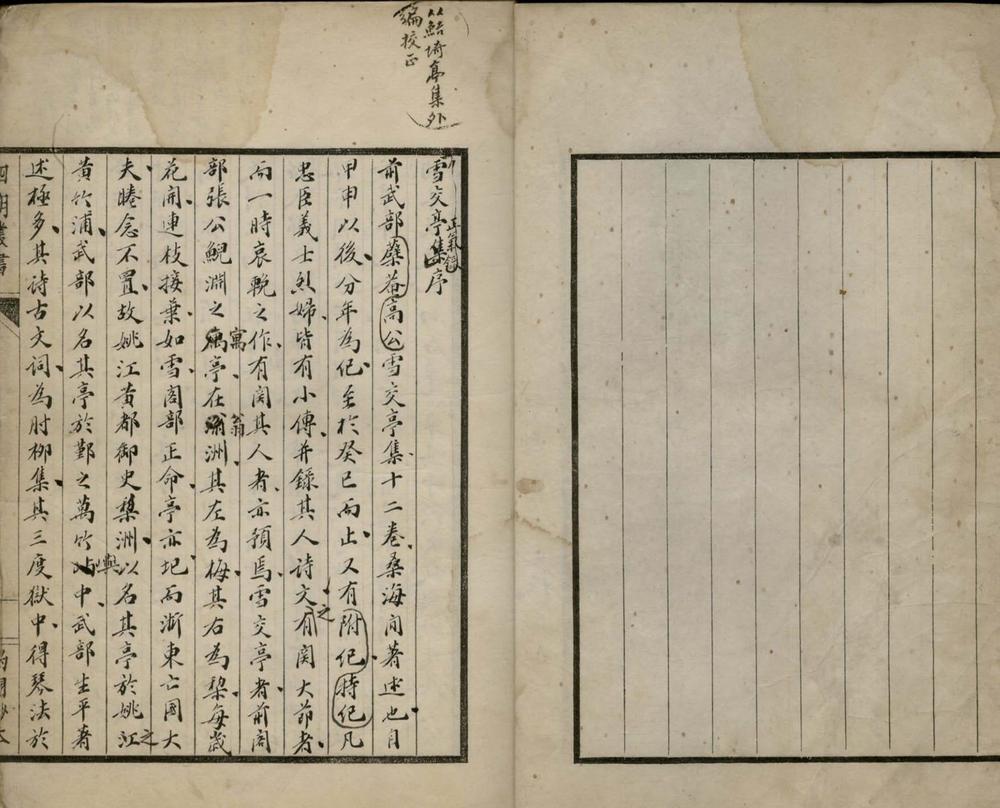 以鮚埼亭集外
編校正
雪交亭集序
正氣錄
前武部蘗菴高公雪交亭集十二卷桑海間著述也自
甲申以後分年為紀至於癸巳而止又有附紀特紀凡
忠臣義士烈婦皆有小傳并錄其人詩文之有関大節者
而一時哀輓之作有関其人者亦預焉雪交亭者前閣
部張公鯢淵之寓亭在翁洲其左為梅其右為棃每歲
花開連枝接葉如雪閣部正命亭亦圮而浙東亡國大
夫睠念不置故姚江黃都御史棃洲以名其亭於姚江之
黃竹浦武部以名其亭於鄞之萬竹嶼中武部生平著
述極多其詩古文詞為肘柳集其三度獄中得琴法於
四明叢書
約園抄本